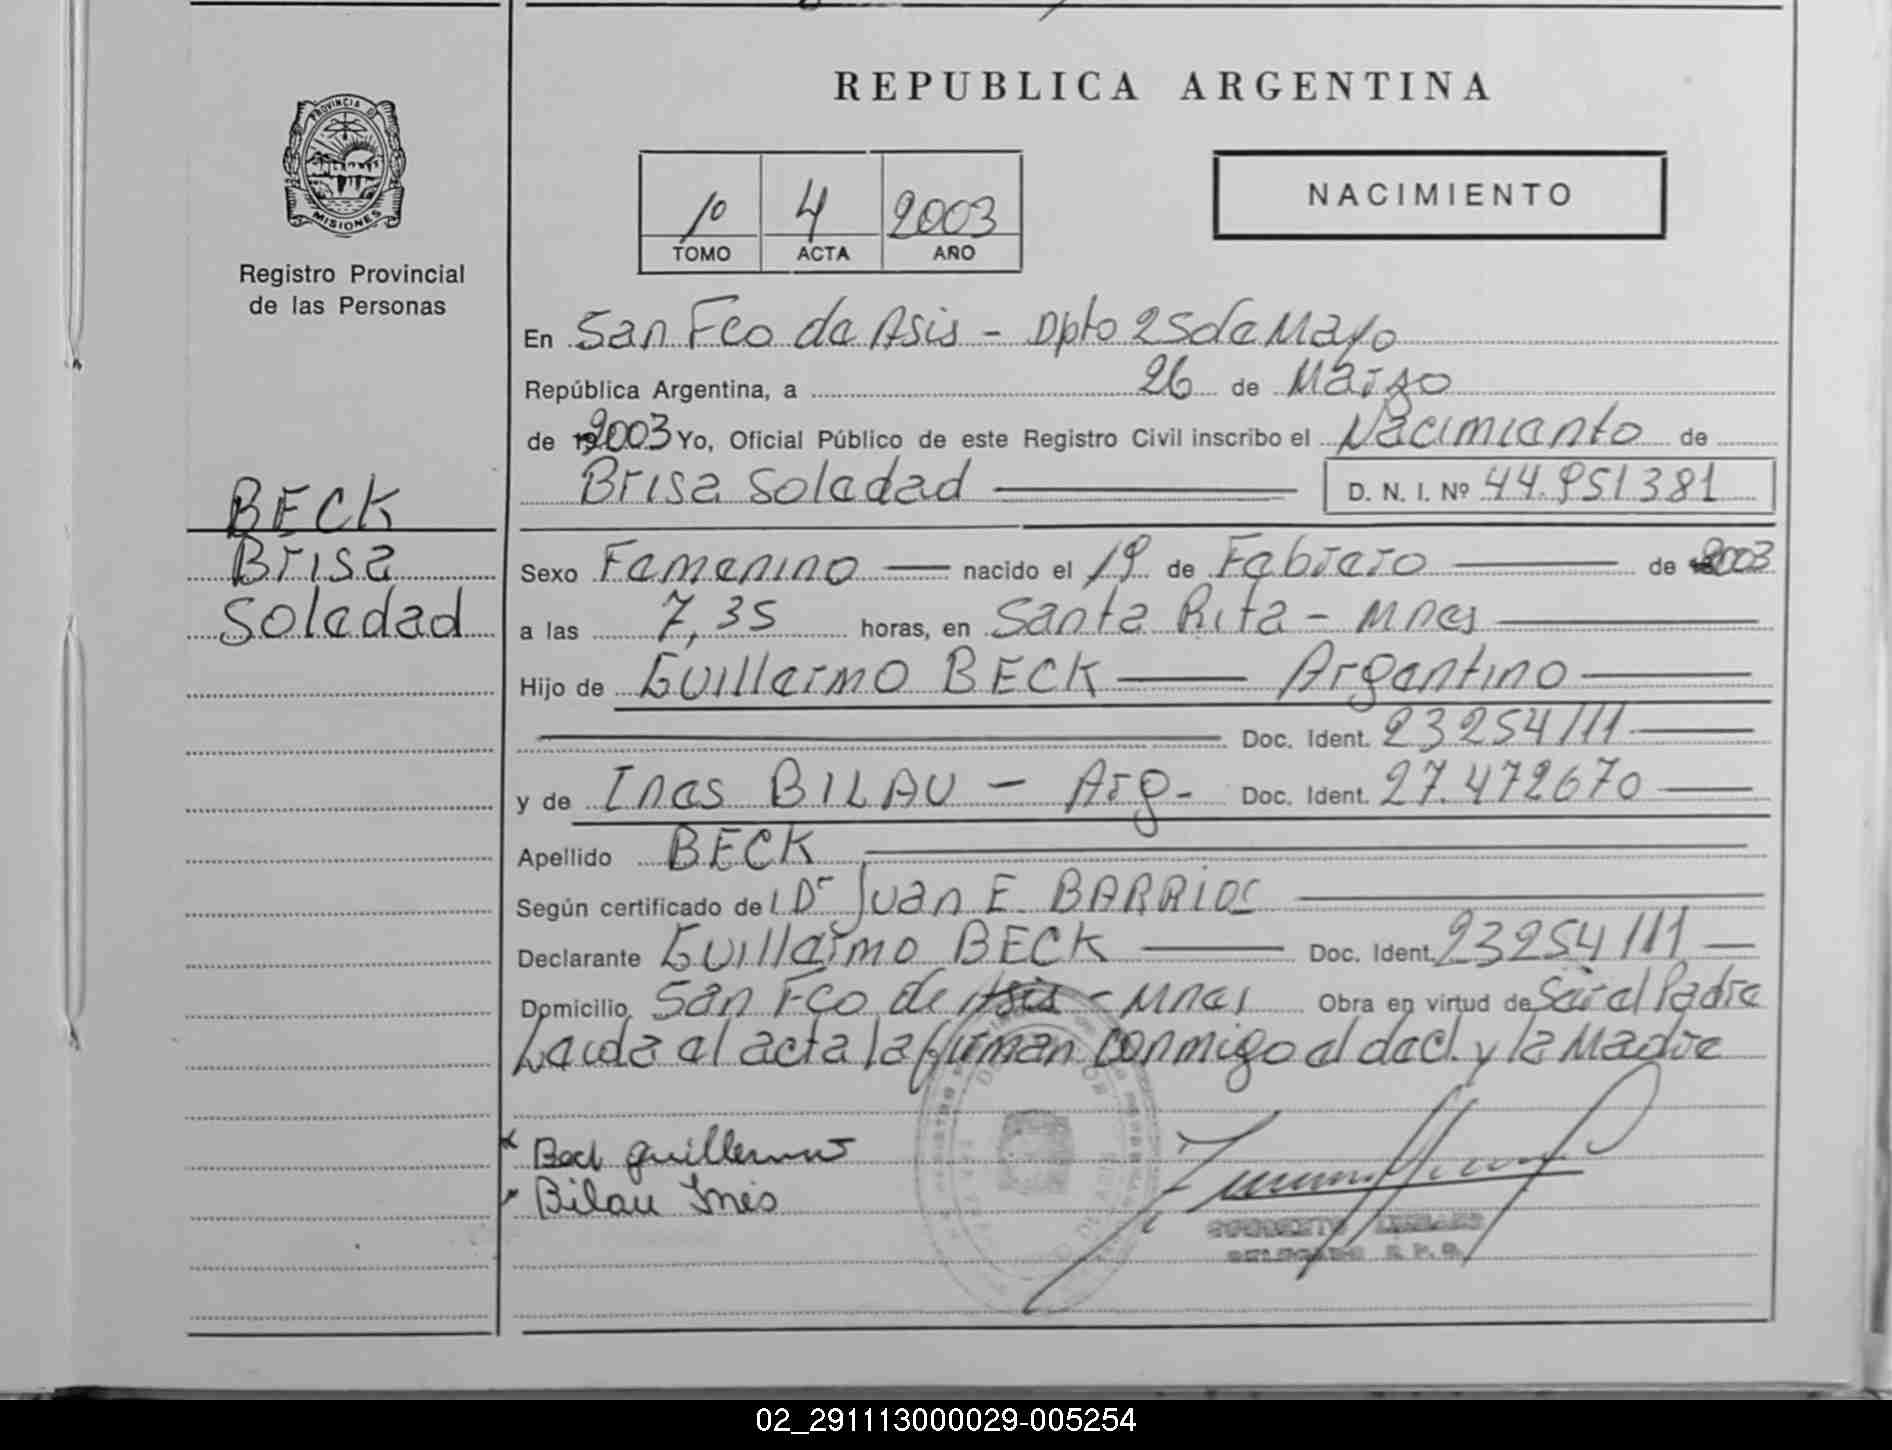 REPUBLICA ARGENTINA
PROVINCIA DE
MISIONES
Registro Provincial
de las Personas
1º 4 2003
TOMO ACTA AÑO
NACIMIENTO
En San Fco de Asis - Dpto 25 de Mayo
República Argentina, a 26 de Marzo
de 2003 Yo, Oficial Público de este Registro Civil inscribo el Nacimiento de
Brisa Soledad D. N. I. Nº 44.951381
BECK
Brisa
Soledad
Sexo Femenino nacido el 19 de Febrero de 2003
a las 7,35 horas, en Santa Rita - Mnes
Hijo de Guillermo BECK Argentino
Doc. Ident. 23254111
y de Ines BILAU - Arg- Doc. Ident. 27.472670
Apellido BECK
Según certificado de Dr Juan E. BARRIOS
Declarante Guillermo BECK Doc. Ident. 23254111
Domicilio San Fco de Asis - Mnes Obra en virtud de Ser el Padre
Leida el acta la firman conmigo el decl. y la Madre
Beck Guillermo
Bilau Inés
DELEGADO R. P. P.
02_291113000029-005254